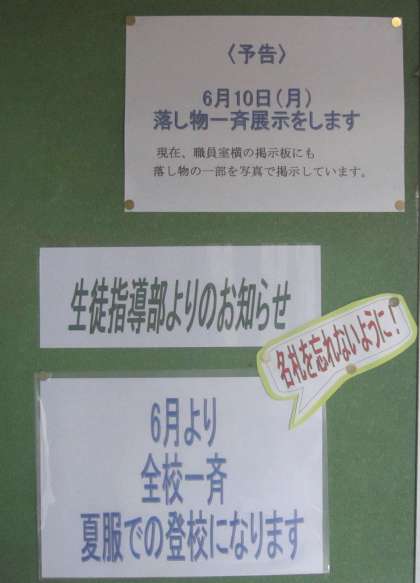 〈予告〉
6月10日(月)
落し物一斉展示をします
現在、職員室横の掲示板にも
落し物の一部を写真で掲示しています。
生徒指導部よりのお知らせ
名札を忘れないように！
6月より
全校一斉
夏服での登校になります